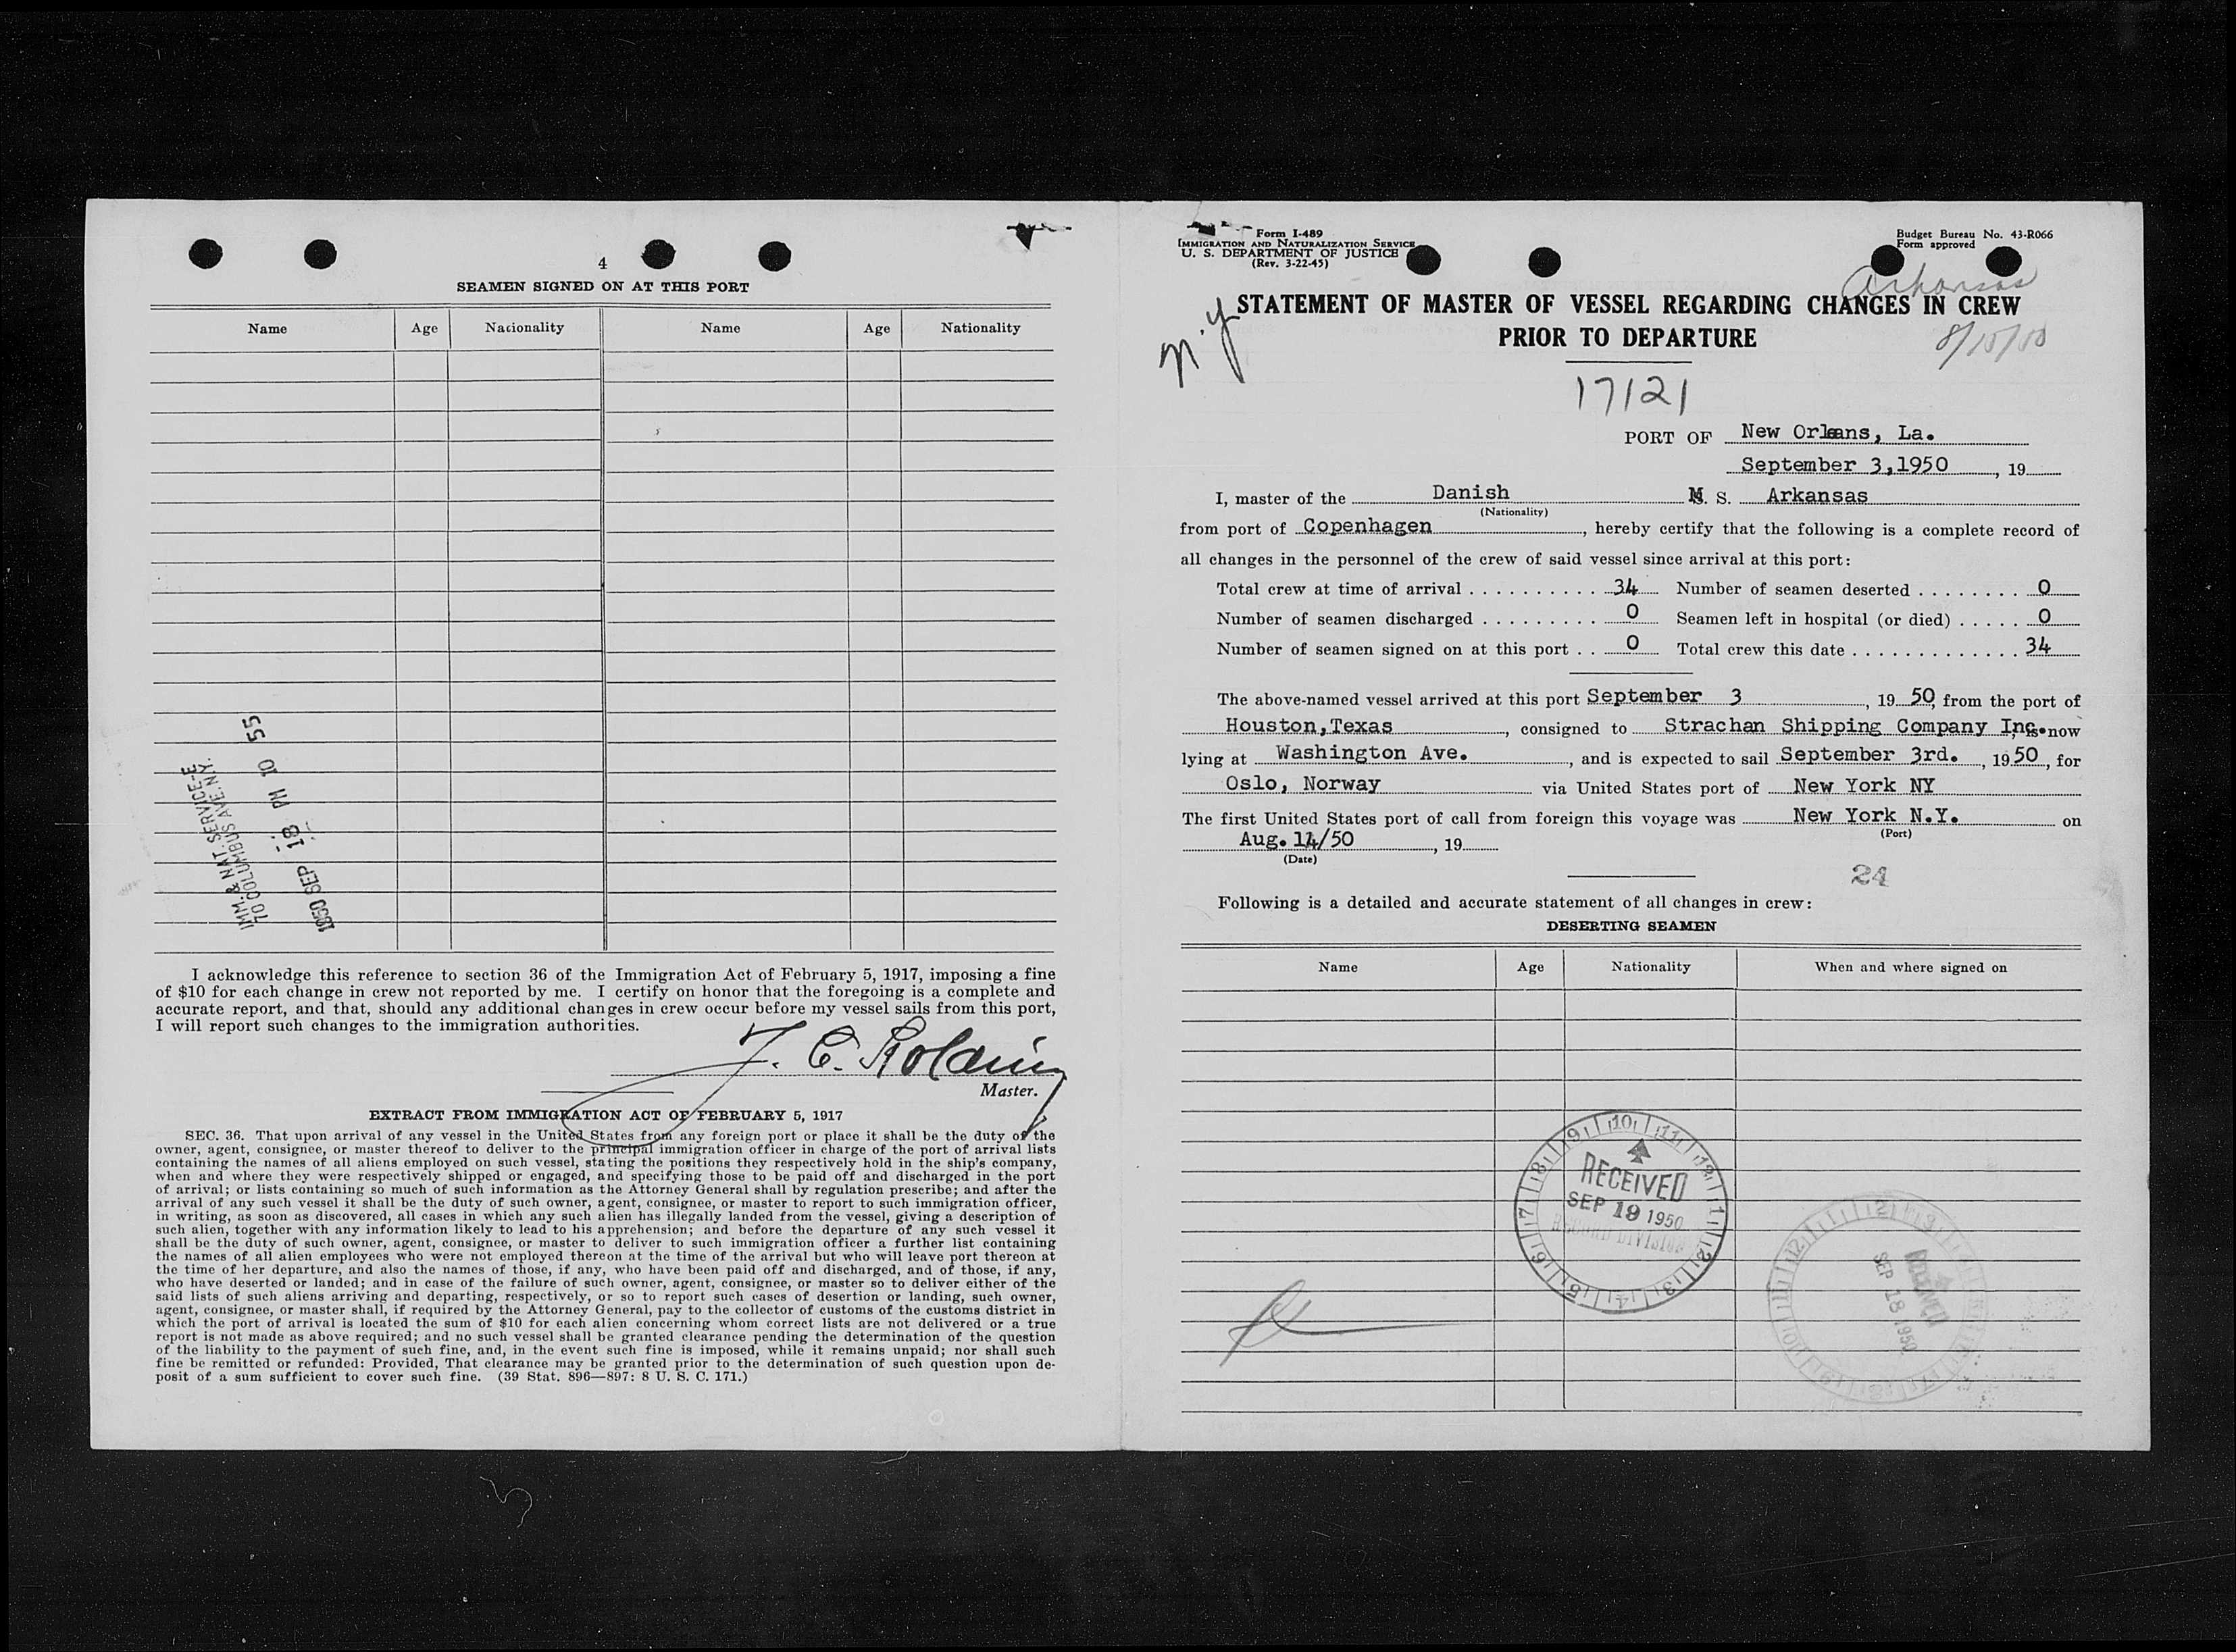 4
SEAMEN SIGNED ON AT THIS PORT
Name Age Nationality Name Age Nationality
IMM. & NAT. SERVICE-E
70 COLUMBUS AVE. N.Y.
1950 SEP 18 PM 10 55
I acknowledge this reference to section 36 of the Immigration Act of February 5, 1917, imposing a fine
of $10 for each change in crew not reported by me. I certify on honor that the foregoing is a complete and
accurate report, and that, should any additional changes in crew occur before my vessel sails from this port,
I will report such changes to the immigration authorities.
Master.
EXTRACT FROM IMMIGRATION ACT OF FEBRUARY 5, 1917
SEC. 36. That upon arrival of any vessel in the United States from any foreign port or place it shall be the duty of the
owner, agent, consignee, or master thereof to deliver to the principal immigration officer in charge of the port of arrival lists
containing the names of all aliens employed on such vessel, stating the positions they respectively hold in the ship's company,
when and where they were respectively shipped or engaged, and specifying those to be paid off and discharged in the port
of arrival; or lists containing so much of such information as the Attorney General shall by regulation prescribe; and after the
arrival of any such vessel it shall be the duty of such owner, agent, consignee, or master to report to such immigration officer,
in writing, as soon as discovered, all cases in which any such alien has illegally landed from the vessel, giving a description of
such alien, together with any information likely to lead to his apprehension; and before the departure of any such vessel it
shall be the duty of such owner, agent, consignee, or master to deliver to such immigration officer a further list containing
the names of all alien employees who were not employed thereon at the time of the arrival but who will leave port thereon at
the time of her departure, and also the names of those, if any, who have been paid off and discharged, and of those, if any,
who have deserted or landed; and in case of the failure of such owner, agent, consignee, or master so to deliver either of the
said lists of such aliens arriving and departing, respectively, or so to report such cases of desertion or landing, such owner,
agent, consignee, or master shall, if required by the Attorney General, pay to the collector of customs of the customs district in
which the port of arrival is located the sum of $10 for each alien concerning whom correct lists are not delivered or a true
report is not made as above required; and no such vessel shall be granted clearance pending the determination of the question
of the liability to the payment of such fine, and, in the event such fine is imposed, while it remains unpaid; nor shall such
fine be remitted or refunded: Provided, That clearance may be granted prior to the determination of such question upon de-
posit of a sum sufficient to cover such fine. (39 Stat. 896—897: 8 U. S. C. 171.)
Form I-489
IMMIGRATION AND NATURALIZATION SERVICE
U. S. DEPARTMENT OF JUSTICE
(Rev. 3-22-45)
Budget Bureau No. 43-R066
Form approved
Arkansas
STATEMENT OF MASTER OF VESSEL REGARDING CHANGES IN CREW
PRIOR TO DEPARTURE
N.Y
8/15/50
17121
PORT OF New Orleans, La.
September 3,1950, 19
I, master of the Danish M. S. Arkansas
(Nationality)
from port of Copenhagen, hereby certify that the following is a complete record of
all changes in the personnel of the crew of said vessel since arrival at this port:
Total crew at time of arrival . . . . . . . . . . 34 Number of seamen deserted . . . . . . . . 0
Number of seamen discharged . . . . . . . . . 0 Seamen left in hospital (or died) . . . . . 0
Number of seamen signed on at this port . . 0 Total crew this date . . . . . . . . . . . . . 34
The above-named vessel arrived at this port September 3, 19 50, from the port of
Houston,Texas, consigned to Strachan Shipping Company Inc., is now
lying at Washington Ave., and is expected to sail September 3rd., 19 50, for
Oslo, Norway via United States port of New York NY
The first United States port of call from foreign this voyage was New York N.Y. on
(Port)
Aug. 14/50, 19
(Date)
24
Following is a detailed and accurate statement of all changes in crew:
DESERTING SEAMEN
Name Age Nationality When and where signed on
RECEIVED
SEP 19 1950
RECORD DIVISION
RECEIVED
SEP 18 1950